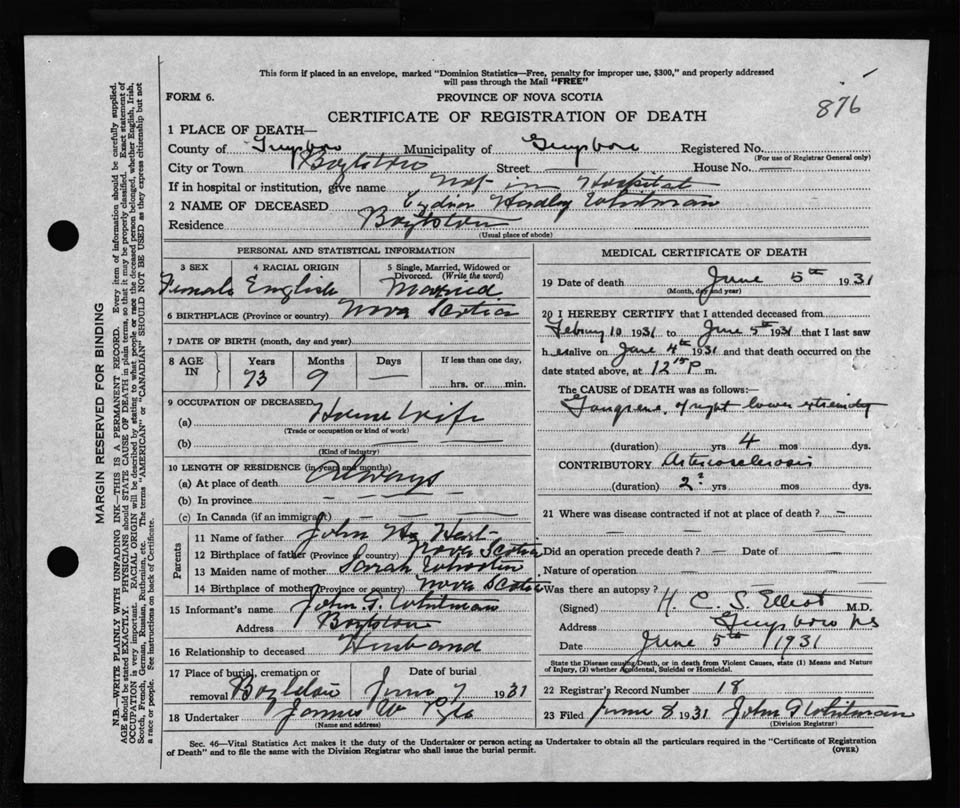 This form if placed in an envelope, marked "Dominion Statistics—Free, penalty for improper use, $300," and properly addressed
will pass through the Mail "FREE"
FORM 6.
PROVINCE OF NOVA SCOTIA
876
CERTIFICATE OF REGISTRATION OF DEATH
1 PLACE OF DEATH—
County of Guysboro Municipality of Guysboro Registered No.
(For use of Registrar General only)
City or Town Boylston Street — House No. —
If in hospital or institution, give name Not in Hospital
2 NAME OF DECEASED Lydia Hadley Whitman
Residence Boylston
(Usual place of abode)
PERSONAL AND STATISTICAL INFORMATION
3 SEX 4 RACIAL ORIGIN 5 Single, Married, Widowed or Divorced. (Write the word)
Female English Married
6 BIRTHPLACE (Province or country) Nova Scotia
7 DATE OF BIRTH (month, day and year)
8 AGE IN Years Months Days If less than one day,
73 9 — hrs. or min.
9 OCCUPATION OF DECEASED
(a) House Wife
(Trade or occupation or kind of work)
(b) — —
(Kind of industry)
10 LENGTH OF RESIDENCE (in years and months)
(a) At place of death Always
(b) In province — — — —
(c) In Canada (if an immigrant) — — —
Parents
11 Name of father John Hart
12 Birthplace of father (Province or country) Nova Scotia
13 Maiden name of mother Sarah
14 Birthplace of mother (Province or country) Nova Scotia
15 Informant's name John G. Whitman
Address Boylston
16 Relationship to deceased Husband
17 Place of burial, cremation or removal Boylston Date of burial June 7 1931
18 Undertaker James W
(Name and address)
MEDICAL CERTIFICATE OF DEATH
19 Date of death June 5th 1931
(Month, day and year)
20 I HEREBY CERTIFY that I attended deceased from
Februy 10 1931 to June 5th 1931 that I last saw
her alive on June 4th 1931 and that death occurred on the
date stated above, at 12 15 P m.
The CAUSE OF DEATH was as follows:
Gangrene of right lower extremity
(duration) yrs 4 mos dys.
CONTRIBUTORY Arteriosclerosis
(duration) 2? yrs mos dys.
21 Where was disease contracted if not at place of death? —
Did an operation precede death? — Date of —
Nature of operation —
Was there an autopsy? —
(Signed) H. C. S. Elliot M.D.
Address Guysboro NS
Date June 5th 1931
State the Disease causing Death, or in death from Violent Causes, state (1) Means and Nature
of Injury, (2) whether Accidental, Suicidal or Homicidal.
22 Registrar's Record Number 18
23 Filed June 8 1931 John G Whitman
(Division Registrar)
Sec. 46—Vital Statistics Act makes it the duty of the Undertaker or person acting as Undertaker to obtain all the particulars required in the "Certificate of Registration
of Death" and to file the same with the Division Registrar who shall issue the burial permit.
(OVER)
MARGIN RESERVED FOR BINDING
N.B.—WRITE PLAINLY WITH UNFADING INK—THIS IS A PERMANENT RECORD. Every item of information should be carefully supplied.
AGE should be stated EXACTLY. PHYSICIANS should STATE CAUSE OF DEATH in plain terms, so that it may be properly classified. Exact statement of
OCCUPATION is very important. RACIAL ORIGIN will be described by stating to what people or race the deceased person belonged, whether English, Irish,
Scotch, French, German, Russian, Ruthenian, etc. The terms "AMERICAN" or "CANADIAN" SHOULD NOT BE USED as they express citizenship but not
a race or people. See instructions on back of Certificate.